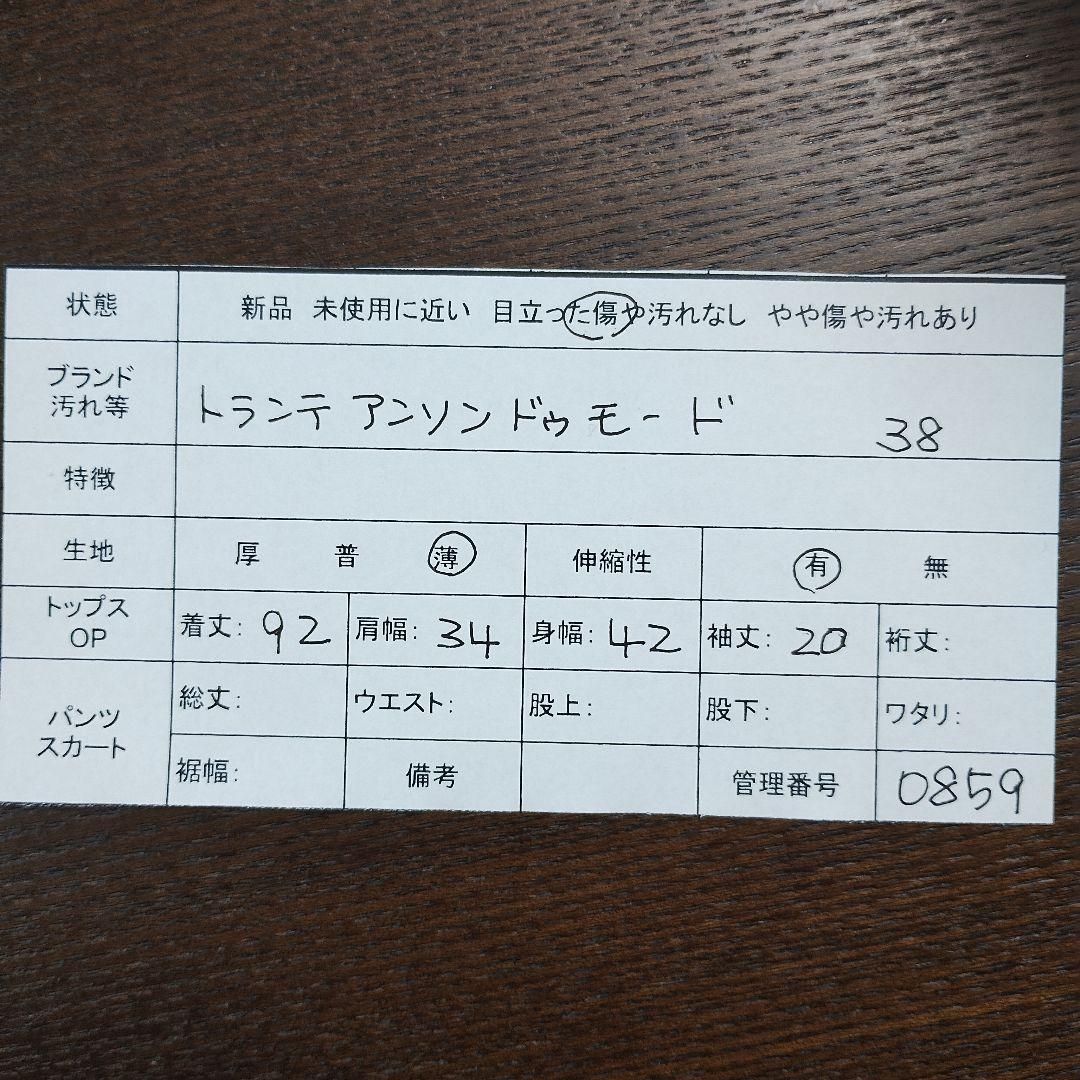 状態 新品 未使用に近い 目立った傷や汚れなし やや傷や汚れあり
ブランド
汚れ等
トランテアンソンドゥモード 38
特徴
生地 厚 普 薄 伸縮性 有 無
トップス
OP
着丈: 92 肩幅: 34 身幅: 42 袖丈: 20 裄丈:
パンツ
スカート
総丈: ウエスト: 股上: 股下: ワタリ:
裾幅: 備考 管理番号 0859